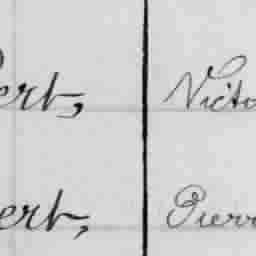 ert, Victo
ert, Pierr